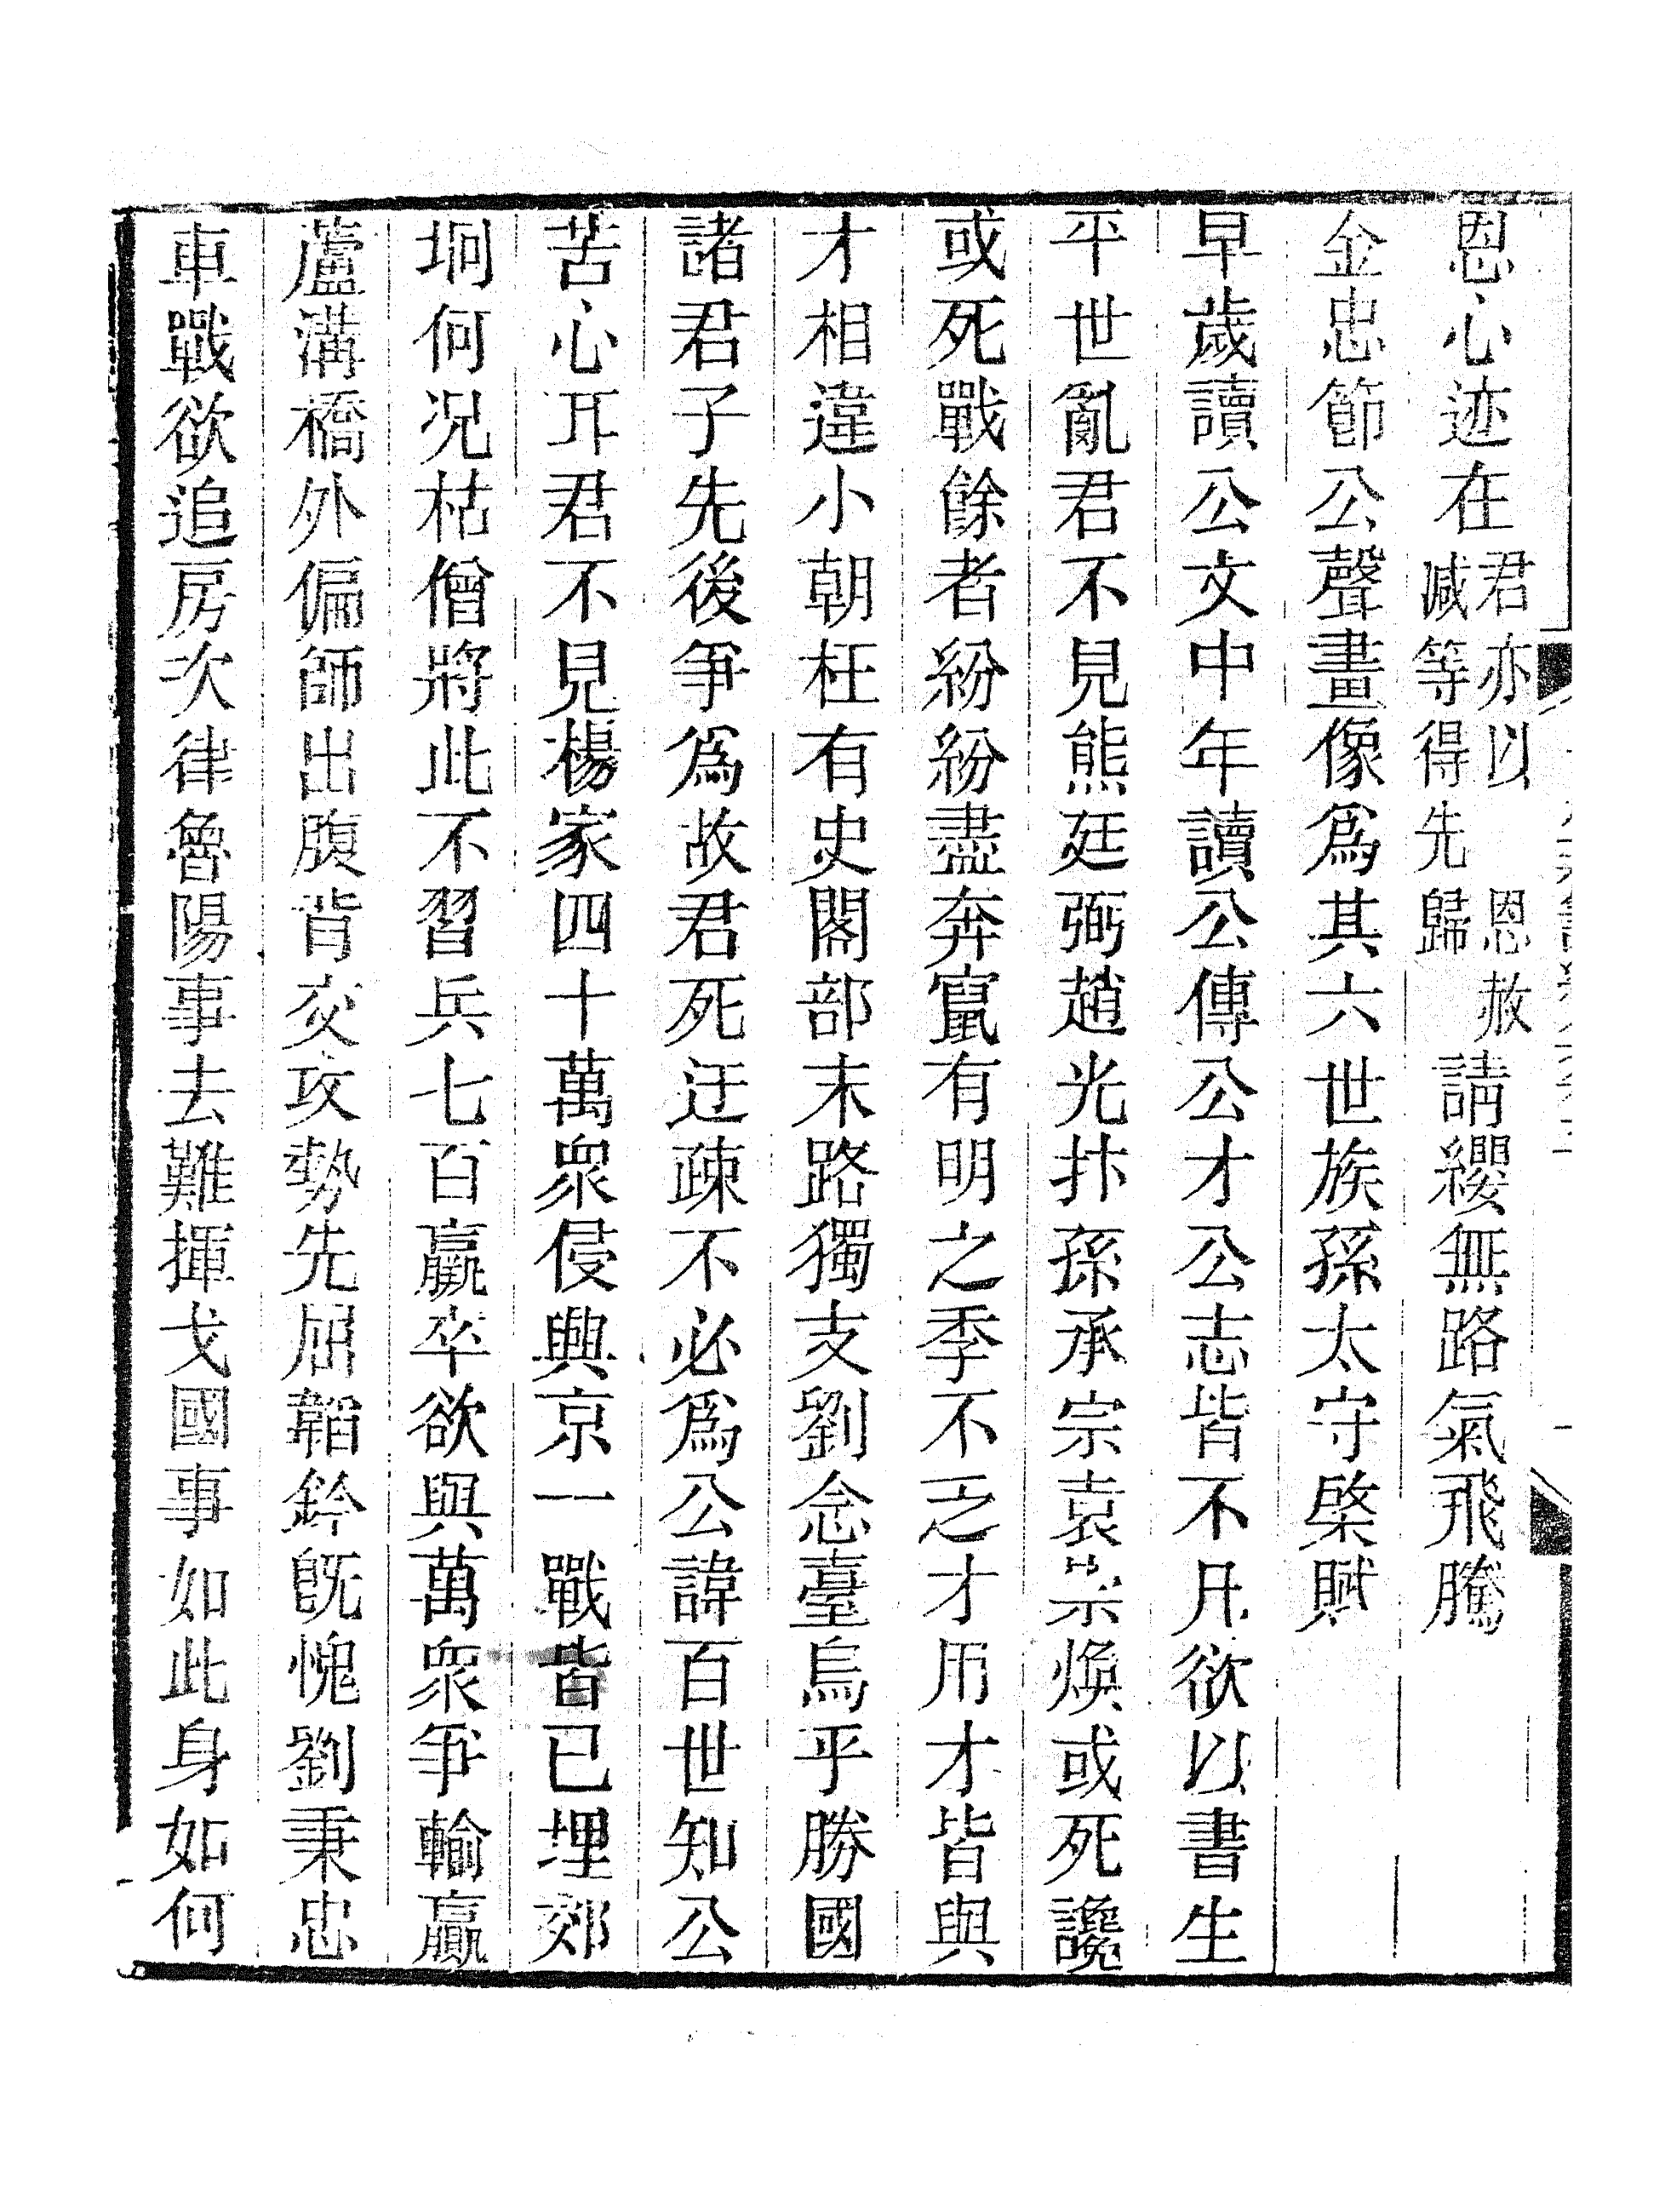 恩心迹在君亦以恩赦減等得先歸請纓無路氣飛騰
金忠節公聲畫像爲其六世族孫太守棨賦
早歲讀公文中年讀公傳公才公志皆不凡欲以書生
平世亂君不見熊廷弼趙光抃孫承宗袁崇煥或死讒
或死戰餘者紛紛盡奔竄有明之季不乏才用才皆與
才相違小朝枉有史閣部末路獨支劉念臺烏乎勝國
諸君子先後爭爲故君死迂疎不必爲公諱百世知公
苦心耳君不見楊家四十萬衆侵興京一戰皆已埋郊
坰何况枯僧將此不習兵七百羸卒欲與萬衆爭輸贏
蘆溝橋外偏師出腹背交攻勢先屈韜鈐旣愧劉秉忠
車戰欲追房次律魯陽事去難揮戈國事如此身如何